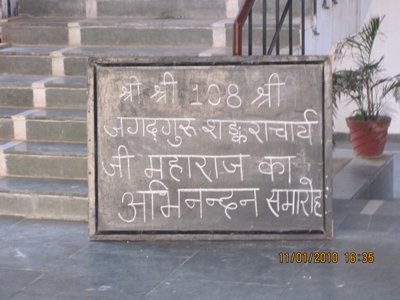 श्री श्री 108 श्री
जगद्गुरू शङ्कराचार्य
जी महाराज का
अभिनन्दन समारोह
11/01/2010 16:35